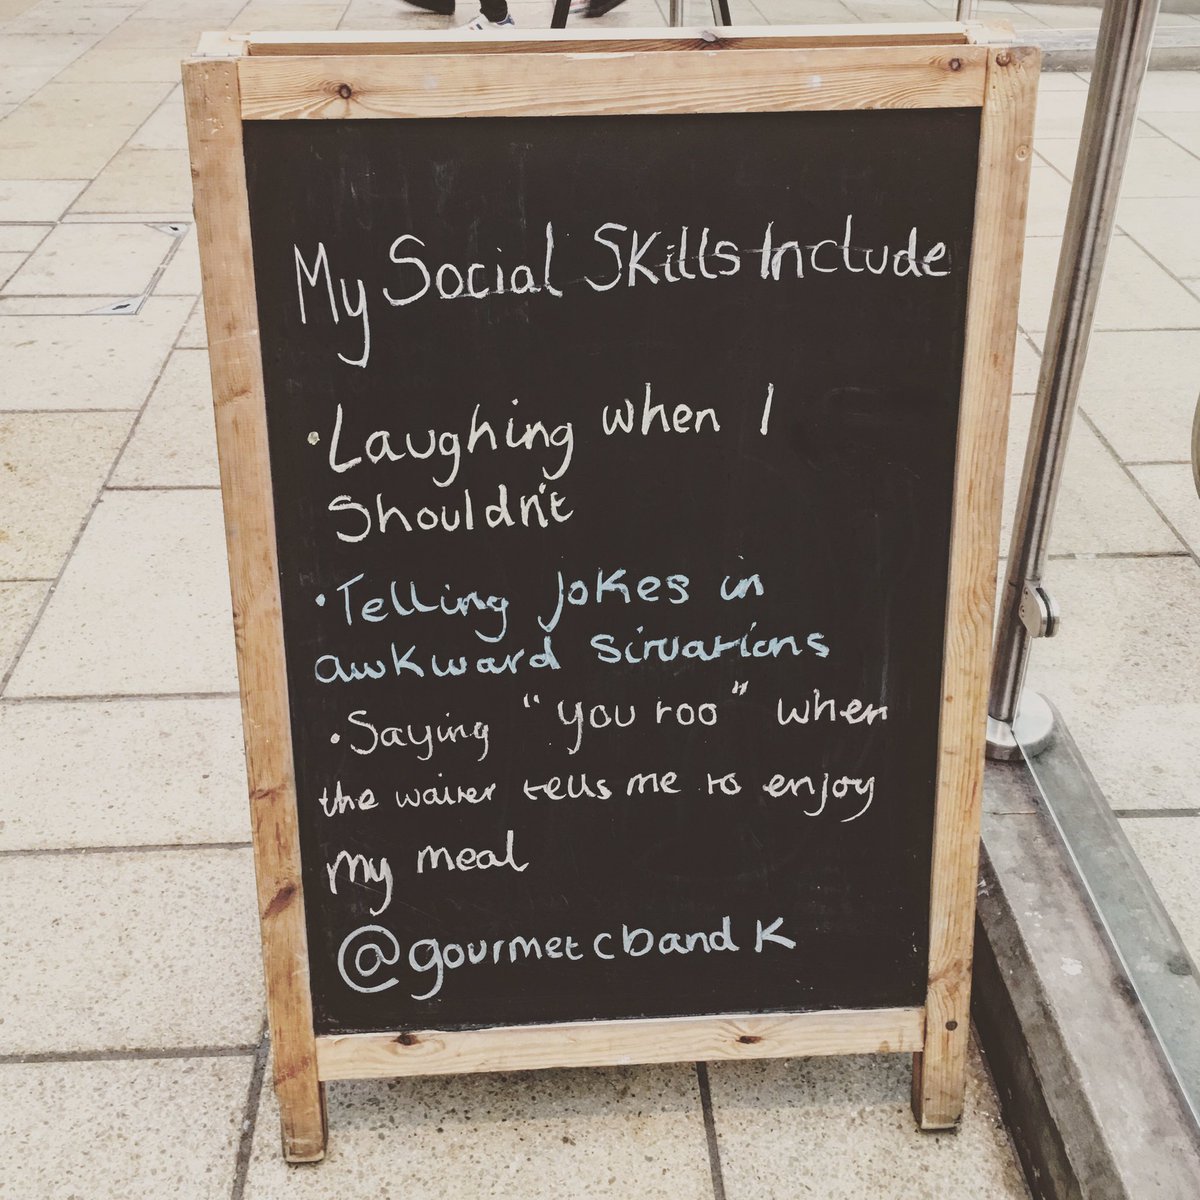 My Social Skills Include
• Laughing when I
Shouldn't
• Telling Jokes in
awkward situations
• Saying "you too" when
the waiter tells me to enjoy
my meal
@gourmetcbandk